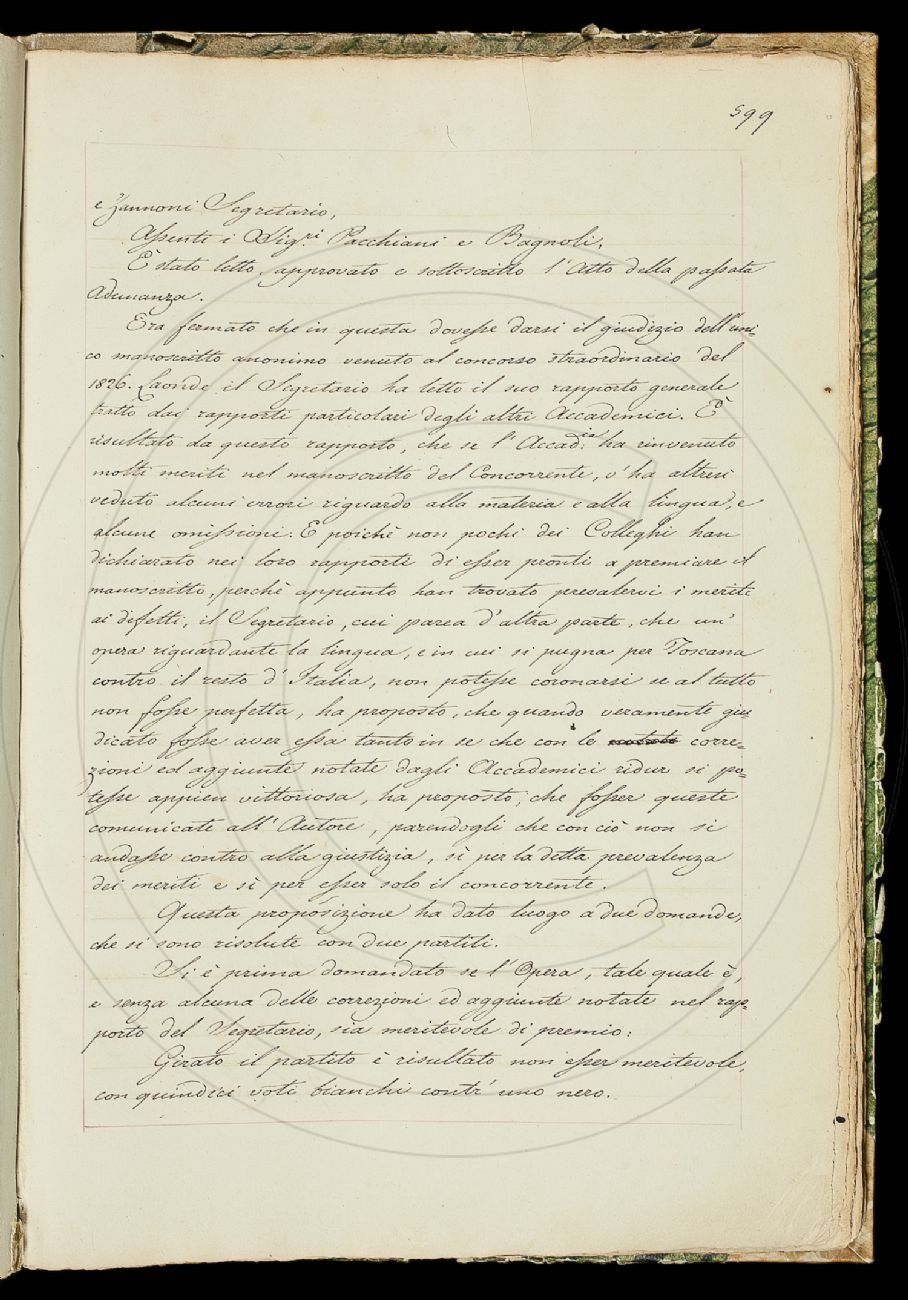 599
e Zannoni Segretario,
Assenti i Sig.ri Pacchiani e Bagnoli.
È stato letto, approvato e sottoscritto l'Atto della passata
Adunanza.
Era fermato che in questa dovesse darsi il giudizio dell'uni-
co manoscritto anonimo venuto al concorso straordinario del
1826. Laonde il Segretario ha letto il suo rapporto generale
tratto dai rapporti particolari degli altri Accademici. È
risultato da questo rapporto, che se l'Accad.ia ha rinvenuto
molti meriti nel manoscritto del Concorrente, v'ha altresì
veduto alcuni errori riguardo alla materia e alla lingua, e
alcune omissioni. E poichè non pochi dei Colleghi han
dichiarato nei loro rapporti di esser pronti a premiare il
manoscritto, perchè appunto han trovato prevalervi i meriti
ai difetti, il Segretario, cui parea d'altra parte, che un'
opera riguardante la lingua, e in cui si pugna per Toscana
contro il resto d'Italia, non potesse coronarsi se al tutto
non fosse perfetta, ha proposto, che quando veramente giu-
dicato fosse aver essa tanto in se che con le corre=
zioni ed aggiunte notate dagli Accademici ridur si po=
tesse appien vittoriosa, ha proposto, che fosser queste
comunicate all'Autore, parendogli che con ciò non si
andasse contro alla giustizia, sì per la detta prevalenza
dei meriti e sì per esser solo il concorrente.
Questa proposizione ha dato luogo a due domande,
che si sono risolute con due partiti.
Si è prima domandato se l'Opera, tale quale è,
e senza alcuna delle correzioni ed aggiunte notate nel rap=
porto del Segretario, sia meritevole di premio:
Girato il partito è risultato non esser meritevole,
con quindici voti bianchi contr'uno nero.